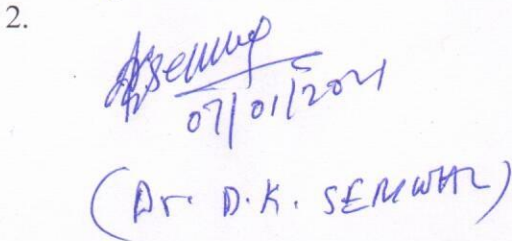 2.
07/01/2021
(Dr. D.K. SEMWAL)